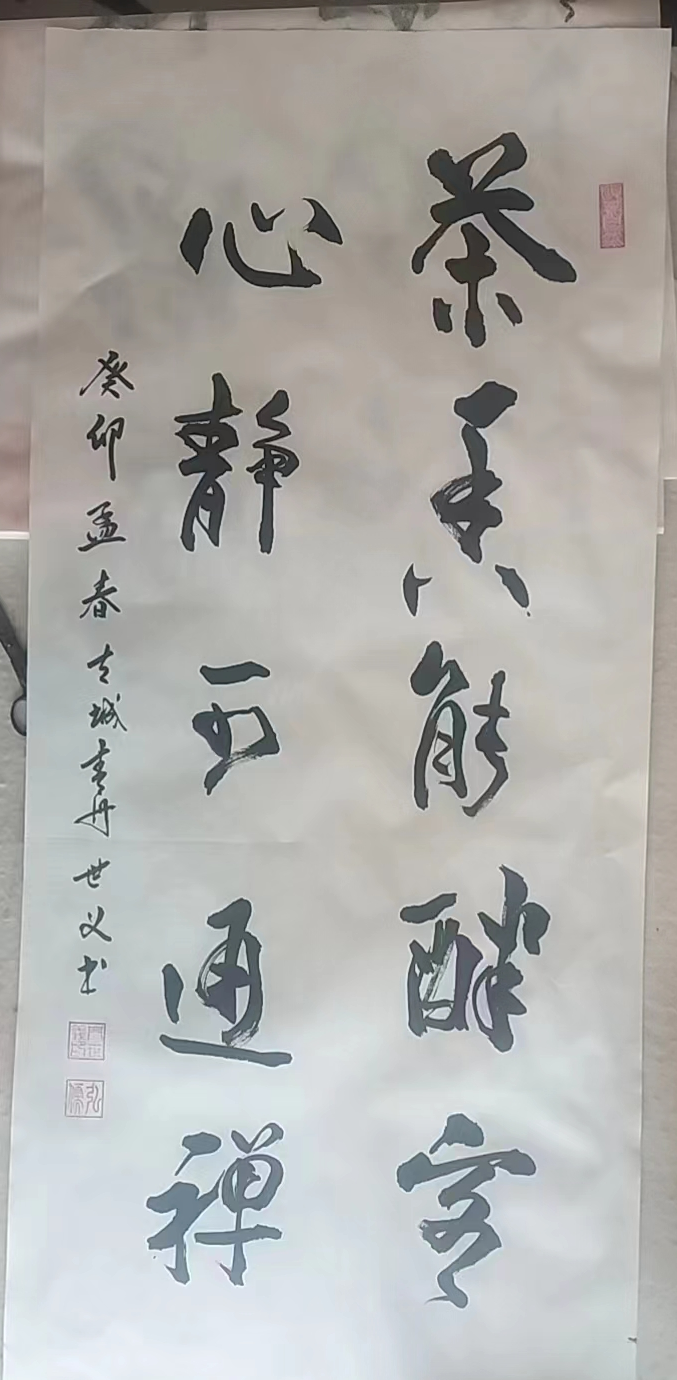 茶香能醉客
心静可通禅
癸卯孟春古城青丹世义书